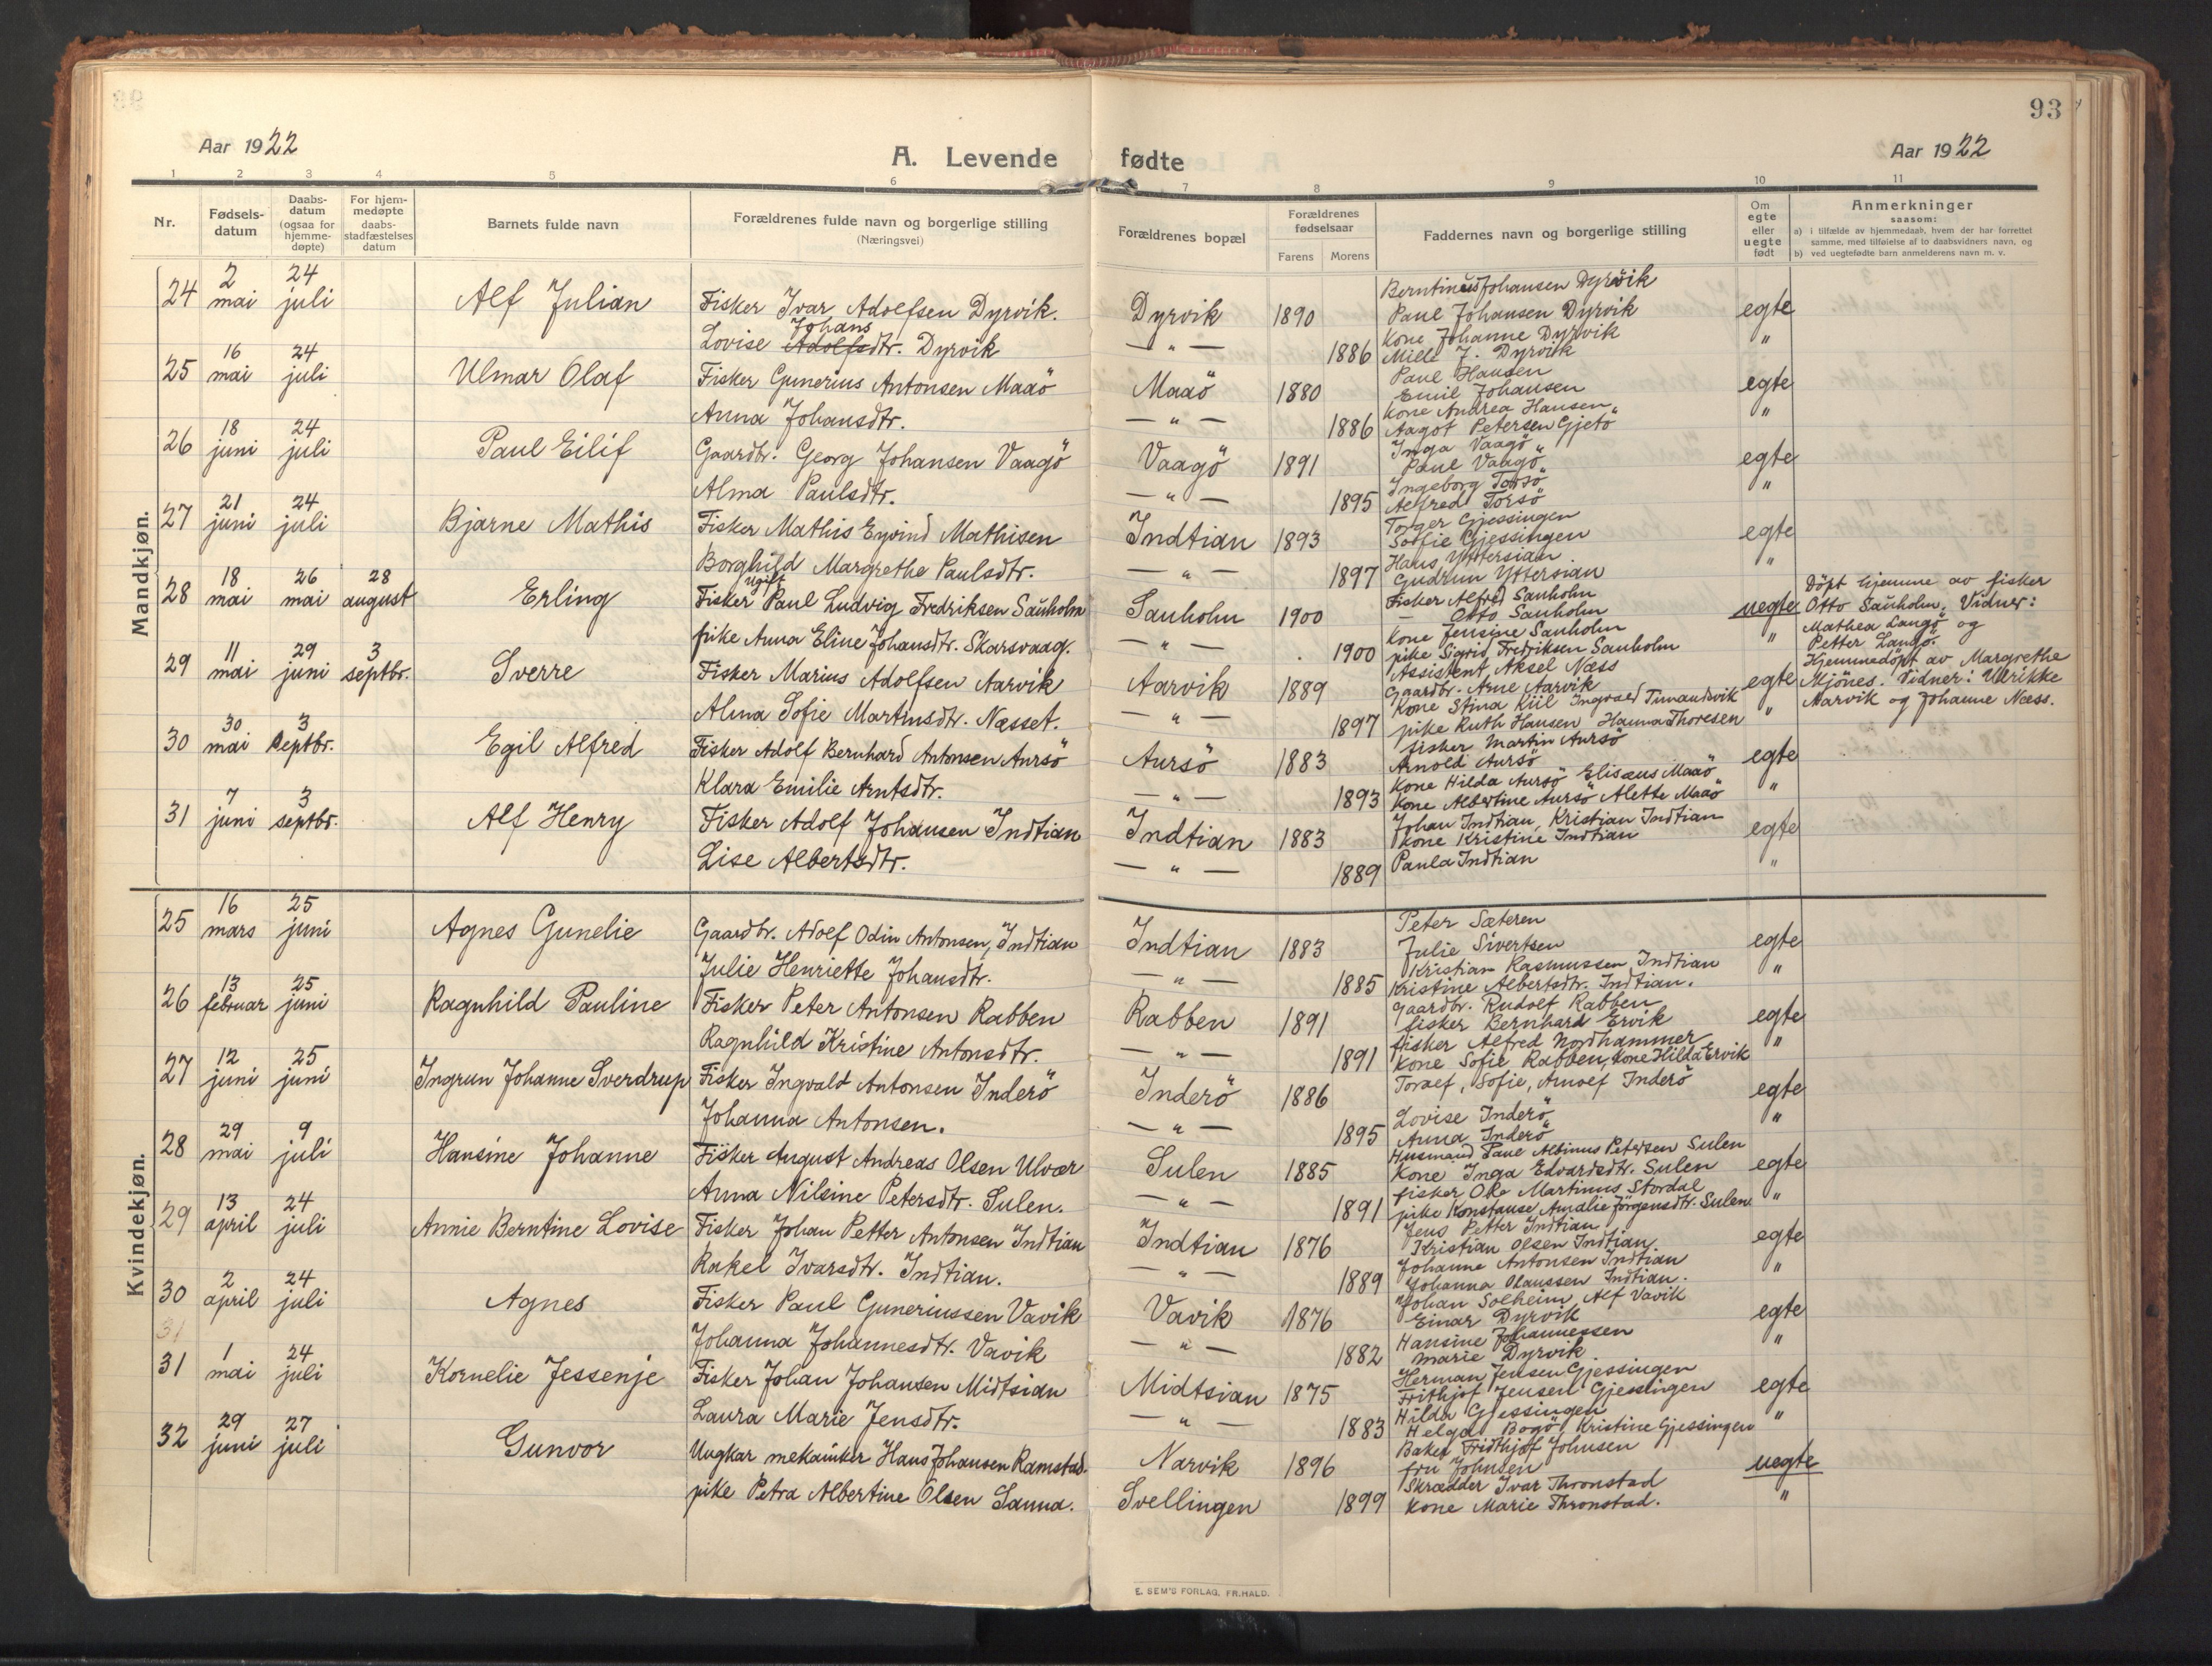 93
Aar 1922
A. Levende fødte
Aar 1922
1 2 3 4 5 6 7 8 9 10 11
Nr.
Fødsels-
datum
Daabs-
datum
(ogsaa for
hjemme-
døpte)
For hjem-
medøpte
daabs-
stadfæstelses
datum
Barnets fulde navn
Forældrenes fulde navn og borgerlige stilling
(Næringsvei)
Forældrenes bopæl
Forældrenes
fødselsaar
Farens Morens
Faddernes navn og borgerlige stilling
Om
egte
eller
uegte
født
Anmerkninger
saasom:
a) i tilfælde av hjemmedaab, hvem der har forrettet
samme, med tilføielse af to daabsvidners navn, og
b) ved uegtefødte barn anmelderens navn m. v.
Mandkjøn.
24 2 mai 24 juli Alf Julian
Fisker Ivar Adolfsen Dyrvik.
Johans
Lovise Adolfsdtr. Dyrvik
Dyrvik 1890
— " — 1886
Berntinus Johansen Dyrvik
Paul Johansen Dyrvik
Kone Johanne Dyrvik
Miele J. Dyrvik
egte
"
25 16 mai 24 juli Ulmar Olaf
Fisker Gunerius Antonsen Maaö
Anna Johansdtr.
Maaö 1880
— " — 1886
Paul Hansen
Emil Johansen
Kone Andrea Hansen
Aagot Petersen Gjetö
egte
"
26 18 juni 24 juli Paul Eilif
Gaardbr. Georg Johansen Vaagö
Alma Paulsdtr.
Vaagö 1891
— " — 1895
Inga Vaagö
Paul Vaagö
Ingeborg Torsö
Alfred Torsö
egte
"
27 21 juni 24 juli Bjarne Mathis
Fisker Mathis Eyvind Mathisen
Borghild Margrethe Paulsdtr.
Indtian 1893
— " — 1897
Torger Gjessingen
Sofie Gjessingen
Hans Yttersian
Gudrun Yttersian
egte
"
28 18 mai 26 mai 28 august Erling
Ugift
Fisker Paul Ludvig Fredriksen Sauholm
pike Anna Eline Johansdtr. Skarsvaag.
Sauholm 1900
— " — 1900
Fisker Alfred Sauholm
— Otto Sauholm
Kone Jensine Sauholm
pike Sigrid Fredriksen Sauholm
uegte
"
Döpt hjemme av fisker
Otto Sauholm. Vidner:
Mathea Langö og
Petter Langö.
29 11 mai 29 juni 3 septbr. Sverre
Fisker Marius Adolfsen Aarvik
Alma Sofie Martinsdtr. Næsset.
Aarvik 1889
— " — 1897
Assistent Aksel Næss
Gaardbr. Arne Aarvik
Kone Stina Kiil Ingvald
pike Ruth Hansen Hanna Thoresen
egte
"
Hjemmedöpt av Margrethe
Mjönes. Vidner: Ulrikke
Aarvik og Johanne Næss.
30 30 mai 3 septbr. Egil Alfred
Fisker Adolf Bernhard Antonsen Aursö
Klara Emilie Arntsdtr.
Aursö 1883
— " — 1893
fisker Martin Aursö
Arnold Aursö
Kone Hilda Aursö Elisæus Maaö
Kone Albertine Aursö Alette Maaö
egte
"
31 7 juni 3 septbr. Alf Henry
Fisker Adolf Johansen Indtian
Lise Albertsdtr.
Indtian 1883
— " — 1889
Johan Indtian, Kristian Indtian
Kone Kristine Indtian
Paula Indtian
egte
"
Kvindekjøn.
25 16 mars 25 juni Agnes Gunelie
Gaardbr. Adolf Odin Antonsen, Indtian
Julie Henriette Johansdtr.
Indtian 1883
— " — 1885
Peter Sæteren
Julie Sivertsen
Kristian Rasmussen Indtian
Kristine Albertsdtr. Indtian.
egte
"
26 13 februar 25 juni Ragnhild Pauline
Fisker Peter Antonsen Rabben
Ragnhild Kristine Antonsdtr.
Rabben 1891
— " — 1891
Gaardbr. Rudolf Rabben
fisker Bernhard Ervik
fisker Alfred Nordhammer
Kone Sofie Rabben, Kone Hilda Ervik
egte
"
27 12 juni 25 juni Ingrun Johanne Sverdrup
Fisker Ingvald Antonsen Inderö
Johanna Antonsen.
Inderö 1886
— " — 1895
Toralf, Sofie, Arnolf Inderö
Lovise Inderö
Anna Inderö
egte
"
28 29 mai 9 juli Hansine Johanne
Fisker August Andreas Olsen Ulvær
Anna Nilsine Petersdtr. Sulen.
Sulen 1885
— " — 1891
Husmand Paul Albinus Petersen Sulen
Kone Inga Edvardsdtr. Sulen
fisker Ole Martinus Stordal
pike Konstanse Amalie Jörgensdtr. Sulen
egte
"
29 13 april 24 juli Annie Berntine Lovise
Fisker Johan Petter Antonsen Indtian
Rakel Ivarsdtr. Indtian.
Indtian 1876
— " — 1889
Jens Petter Indtian
Kristian Olsen Indtian
Johanne Antonsen Indtian
Johanna Olaussen Indtian.
egte
"
30 2 april 24 juli Agnes
Fisker Paul Guneriussen Vavik
Johanna Johannesdtr. Vavik
Vavik 1876
— " — 1882
Johan Solheim, Alf Vavik
Einar Dyrvik
Hansine Johannessen
Marie Dyrvik
egte
"
31
31 1 mai 24 juli Kornelie Jessenje
Fisker Johan Johansen Midtsian
Laura Marie Jensdtr.
Midtsian 1875
— " — 1883
Herman Jensen Gjessingen
Frithjof Jensen Gjessingen
Hilda Gjessingen
Helga Bogö, Kristine Gjessingen
egte
"
32 29 juni 27 juli Gunvor
Ungkar mekaniker Hans Johansen Ramstad.
pike Petra Albertine Olsen Sanna.
Narvik 1896
Svellingen 1899
Baker Fridthjof Johnsen
fru Johnsen
Skrædder Ivar Thronstad
Kone Marie Thronstad.
uegte
"
E. SEM'S FORLAG, FR.HALD.